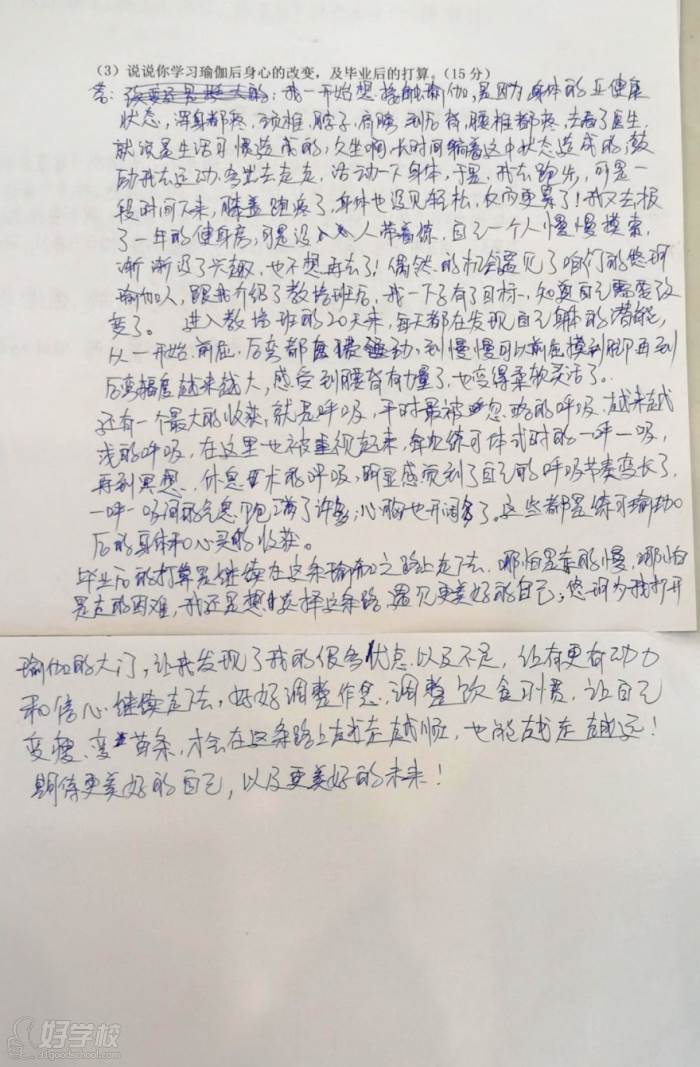 (3) 说说你学习瑜伽后身心的改变，及毕业后的打算。(15分)
答：改变还是挺大的：我一开始想接触瑜伽，是因为身体的亚健康
状态，浑身都疼，颈椎、脖子、肩膀到后背，腰椎都疼，去看了医生，
就说是生活习惯造成的，久坐啊，长时间缩着这中状态造成的，鼓
励我去运动，多出去走走，活动一下身体，于是，我去跑步，可是一
段时间下来，膝盖跑疼了，身体也没见轻松，反而更累了！我又去报
了一年的健身房，可是没人带着练，自己一个人慢慢摸索，
渐渐没了兴趣，也不想再去了！偶然的机会遇见了咱们的悠珂
瑜伽人，跟我介绍了教培班后，我一下子有了目标，知道自己需要改
变了。 进入教培班的20天来，每天都在发现自己身体的潜能，
从一开始前屈，后弯都，到慢慢可以前屈摸到脚再到
后弯幅度越来越大，感受到腰背有力量了，也变得柔软灵活了。
还有一个最大的收获，就是呼吸，平时最被忽略的呼吸，越来越
浅的呼吸，在这里也被重视起来，每次练习体式时的一呼一吸，
再到冥想、休息术的呼吸，明显感觉到了自己的呼吸节奏变长了，
一呼一吸间的气息饱满了许多，心胸也开阔多了。这些都是练习瑜伽
后的身体和心灵的收获。
毕业后的打算是继续在这条瑜伽之路上走下去，哪怕是走的慢，哪怕
是走的困难，我还是想选择这条路，遇见更美好的自己；悠珂为我打开
瑜伽的大门，让我发现了我的很多状态以及不足，让有更有动力
和信心继续走下去，好好调整作息，调整饮食习惯，让自己
变瘦、变苗条，才会在这条路上越走越顺，也能越走越远！
期待更美好的自己，以及更美好的未来！
好学校
91goodschool.com